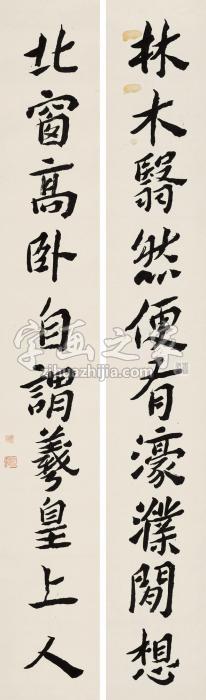 林木翳然便有濠濮閒想
北窗高卧自謂羲皇上人
字画之家
zihuazhijia.com